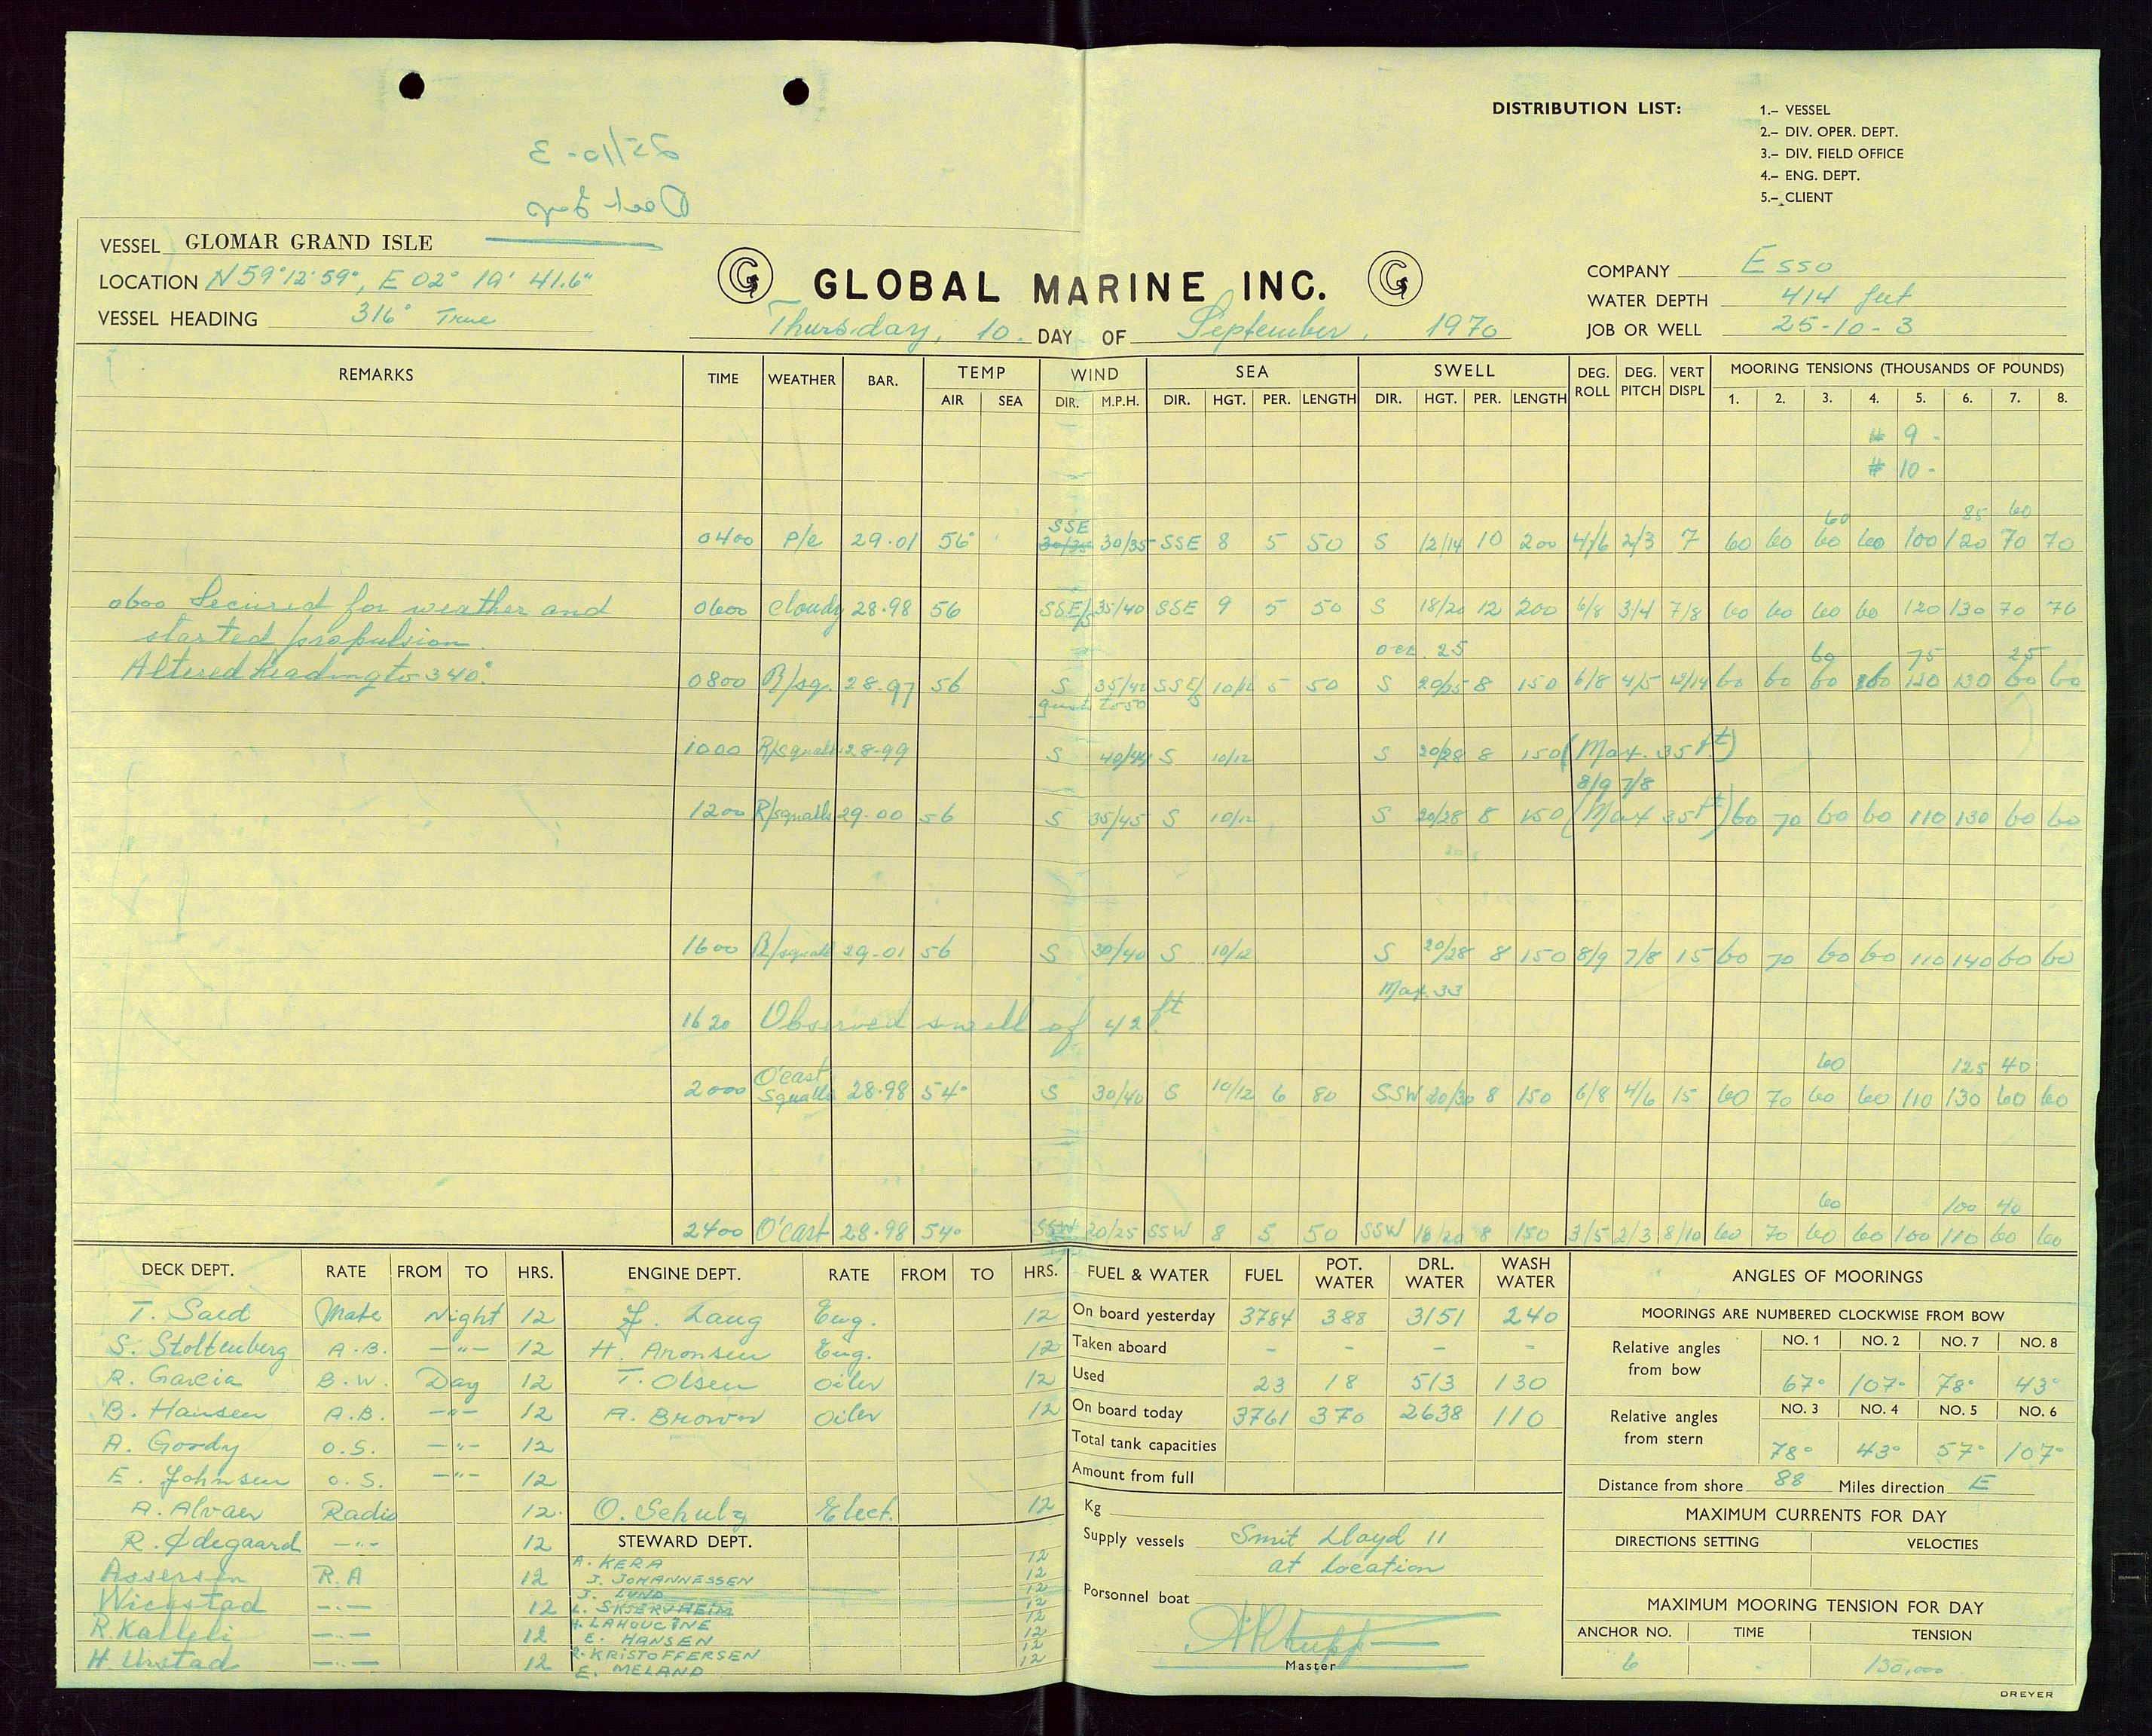 DISTRIBUTION LIST:
1.– VESSEL
2.– DIV. OPER. DEPT.
3.– DIV. FIELD OFFICE
4.– ENG. DEPT.
5.– CLIENT
25/10-3
VESSEL GLOMAR GRAND ISLE
LOCATION N 59° 12' 59", E 02° 19' 41.6"
VESSEL HEADING 316° True
GLOBAL MARINE INC.
Thursday, 10. DAY OF September, 1970
COMPANY Esso
WATER DEPTH 414 feet
JOB OR WELL 25-10-3
REMARKS TIME WEATHER BAR. TEMP WIND SEA SWELL DEG. ROLL DEG. PITCH VERT DISPL MOORING TENSIONS (THOUSANDS OF POUNDS)
AIR SEA DIR. M.P.H. DIR. HGT. PER. LENGTH DIR. HGT. PER. LENGTH 1. 2. 3. 4. 5. 6. 7. 8.
# 9 -
# 10 -
SSE 60 85 60
0400 P/c 29.01 56° 30/35 30/35 SSE 8 5 50 S 12/14 10 200 4/6 2/3 7 60 60 60 60 100 120 70 70
0600 Secured for weather and 0600 Cloudy 28.98 56 SSE/S 35/40 SSE 9 5 50 S 18/20 12 200 6/8 3/4 7/8 60 60 60 60 120 130 70 70
started propulsion. occ. 25 60 75 25
Altered heading to 340° 0800 R/sq. 28.97 56 S 35/40 SSE/S 10/12 5 50 S 20/25 8 150 6/8 4/5 12/14 60 60 60 60 130 130 60 60
gusts to 50
1000 R/squalls 28.99 S 40/45 S 10/12 S 20/28 8 150 (Max. 35 ft)
8/9 7/8
1200 R/squalls 29.00 56 S 35/45 S 10/12 S 20/28 8 150 (Max 35 ft) 60 70 60 60 110 130 60 60
1600 R/squalls 29.01 56 S 30/40 S 10/12 S 20/28 8 150 8/9 7/8 15 60 70 60 60 110 140 60 60
Max. 33
1620 Observed swell of 42 ft.
60 125 40
2000 O'cast Squalls 28.98 54° S 30/40 S 10/12 6 80 SSW 20/30 8 150 6/8 4/6 15 60 70 60 60 110 130 60 60
60 100 40
2400 O'cast 28.98 54° SSW 20/25 SSW 8 5 50 SSW 18/20 8 150 3/5 2/3 8/10 60 70 60 60 100 110 60 60
DECK DEPT. RATE FROM TO HRS.
T. Saed Mate Night 12
S. Stoltenberg A.B. —"— 12
R. Garcia B.W. Day 12
B. Hansen A.B. —"— 12
A. Goody O.S. —"— 12
E. Johnsen O.S. —"— 12
A. Alvaer Radio 12
R. Ødegaard —"— 12
Assersen R.A 12
Wickstad —"— 12
R. Kalleli —"— 12
H. Unstad —"— 12
ENGINE DEPT. RATE FROM TO HRS.
J. Laug Eng. 12
H. Aronsen Eng. 12
T. Olsen Oiler 12
A. Brown Oiler 12
O. Schulz Elect. 12
STEWARD DEPT.
A. KERA 12
J. JOHANNESSEN 12
J. LUND 12
L. SKJERVHEIM 12
H. LAHOUCINE 12
E. HANSEN 12
R. KRISTOFFERSEN 12
E. MELAND 12
FUEL & WATER FUEL POT. WATER DRL. WATER WASH WATER
On board yesterday 3784 388 3151 240
Taken aboard - - - -
Used 23 18 513 130
On board today 3761 370 2638 110
Total tank capacities
Amount from full
Kg
Supply vessels Smit Lloyd 11
at location
Porsonnel boat
Master
ANGLES OF MOORINGS
MOORINGS ARE NUMBERED CLOCKWISE FROM BOW
Relative angles from bow NO. 1 NO. 2 NO. 7 NO. 8
67° 107° 78° 43°
Relative angles from stern NO. 3 NO. 4 NO. 5 NO. 6
78° 43° 57° 107°
Distance from shore 88 Miles direction E
MAXIMUM CURRENTS FOR DAY
DIRECTIONS SETTING VELOCTIES
MAXIMUM MOORING TENSION FOR DAY
ANCHOR NO. TIME TENSION
6 - 130,000
DREYER